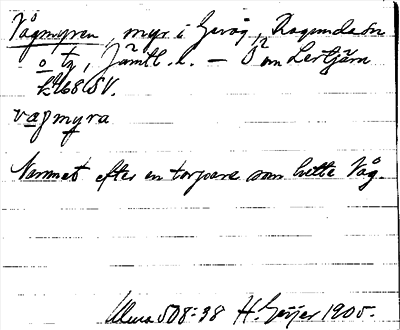 Vågmyren, myr i Gevåg, Ragunda sn
o tg, Jämtl. l. – Ö om Lertjärn
68 SV.
vagmyra
Namnet efter en torpare som hette Våg.
508:38 H. Geijer 1905.